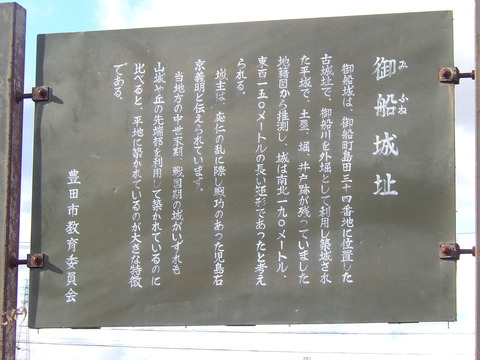 御船城址
みふね
御船城は、御船町島田三十四番地に位置した
古城址で、御船川を外堀として利用し築城され
た平城で、土塁、堀、井戸跡が残っていました。
地籍図から推測し、城は南北一九〇メートル、
東西一五〇メートルの長い逆形であったと考え
られる。
城主は、応仁の乱に際し戦功のあった児島右
京義明と伝えられています。
当地方の中世末期、戦国期の城がいずれも
山城や丘の先端部を利用して築かれているのに
比べると、平地に築かれているのが大きな特徴
である。
豊田市教育委員会